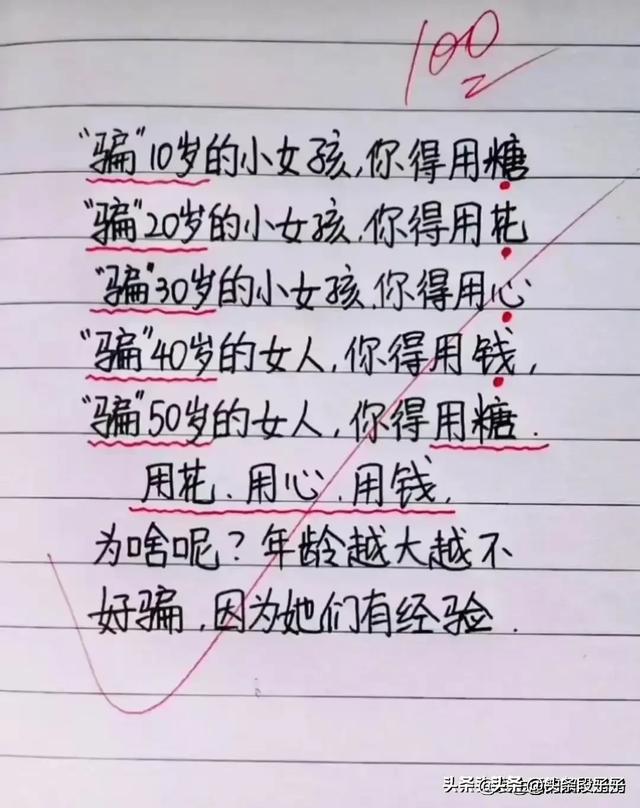 100
“骗”10岁的小女孩,你得用糖
“骗”20岁的小女孩,你得用花
“骗”30岁的小女孩,你得用心
“骗”40岁的女人,你得用钱,
“骗”50岁的女人,你得用糖.
用花、用心、用钱,
为啥呢?年龄越大越不
好骗,因为她们有经验.
头条